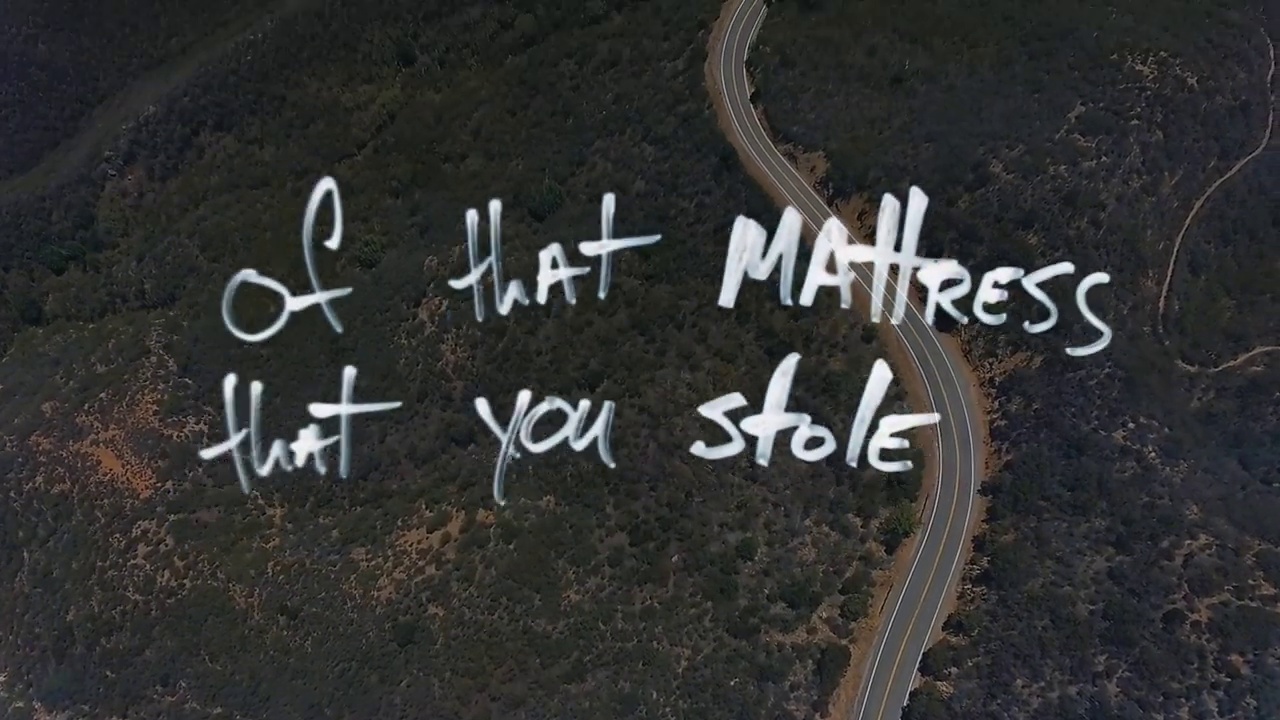 of that MATTRESS
that you stole